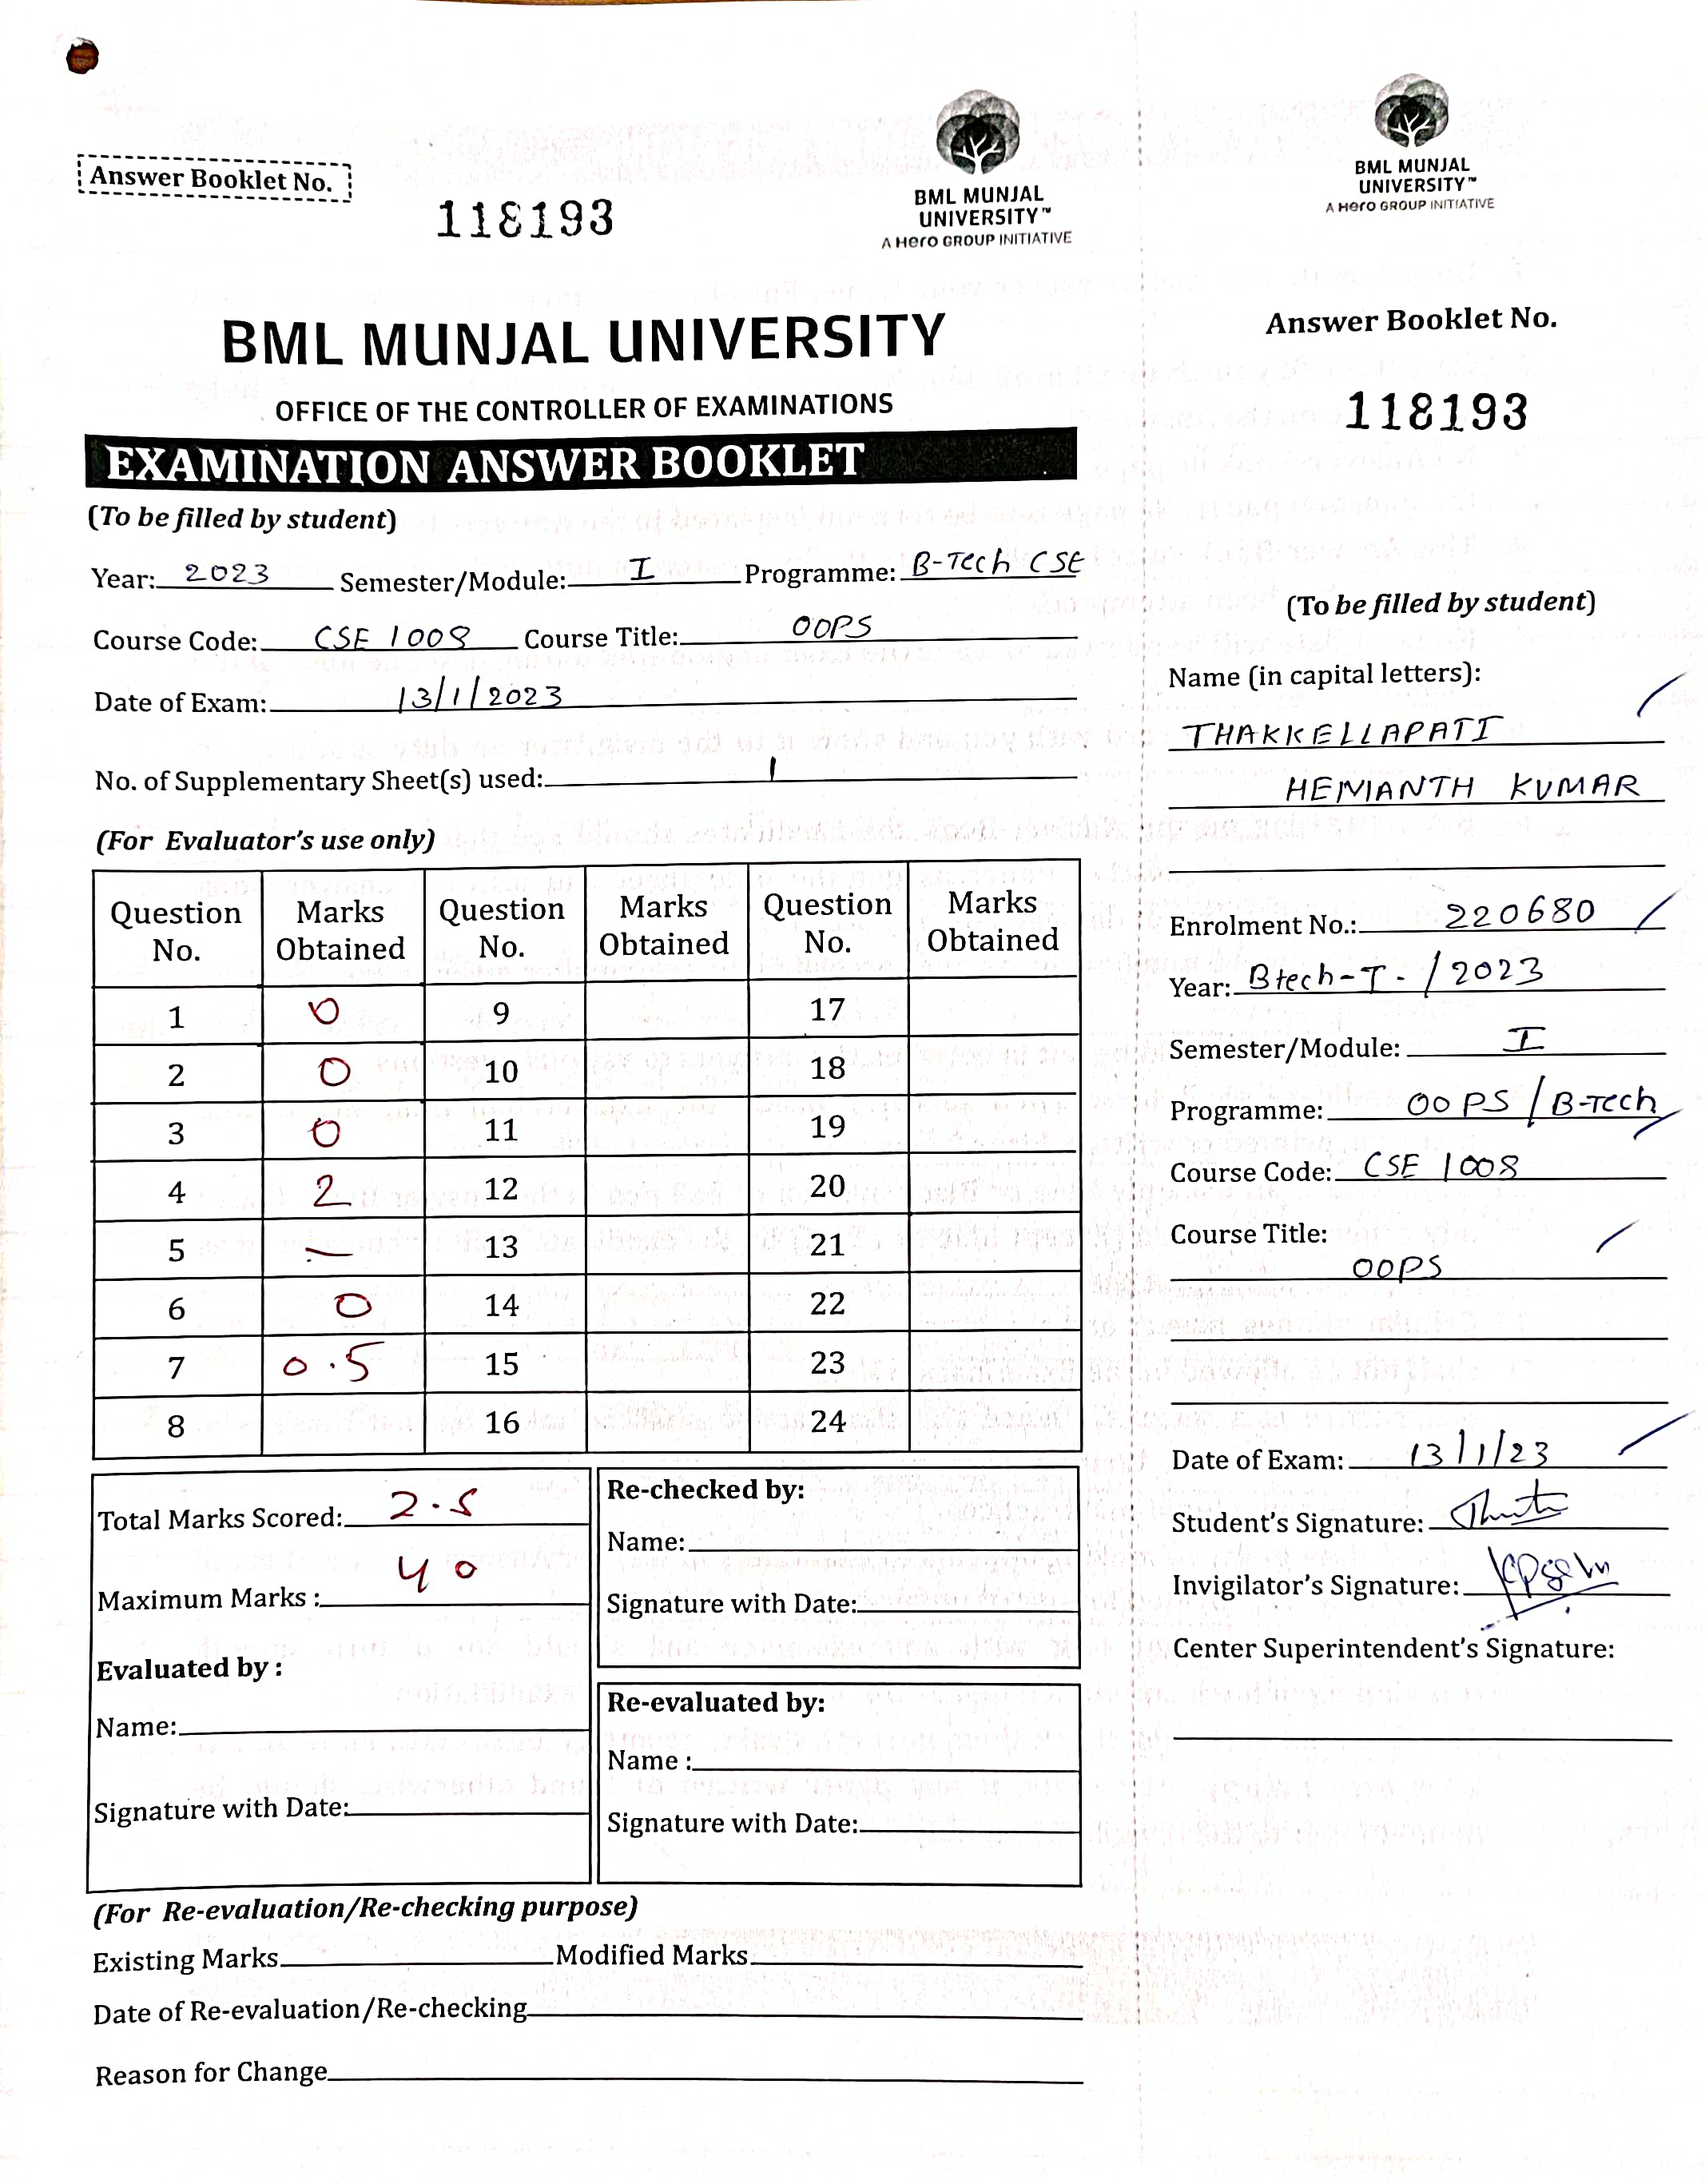 Answer Booklet No.
118193
BML MUNJAL
UNIVERSITY™
A Hero GROUP INITIATIVE
BML MUNJAL UNIVERSITY
OFFICE OF THE CONTROLLER OF EXAMINATIONS
EXAMINATION ANSWER BOOKLET
(To be filled by student)
Year: 2023 Semester/Module: I Programme: B-Tech CSE
Course Code: CSE 1008 Course Title: OOPS
Date of Exam: 13/1/2023
No. of Supplementary Sheet(s) used: 1
(For Evaluator's use only)
Question No. Marks Obtained Question No. Marks Obtained Question No. Marks Obtained
1 0 9 17
2 0 10 18
3 0 11 19
4 2 12 20
5 – 13 21
6 0 14 22
7 0.5 15 23
8 16 24
Total Marks Scored: 2.5
Maximum Marks : 40
Evaluated by :
Name:
Signature with Date:
Re-checked by:
Name:
Signature with Date:
Re-evaluated by:
Name :
Signature with Date:
(For Re-evaluation/Re-checking purpose)
Existing Marks Modified Marks
Date of Re-evaluation/Re-checking
Reason for Change
BML MUNJAL
UNIVERSITY™
A Hero GROUP INITIATIVE
Answer Booklet No.
118193
(To be filled by student)
Name (in capital letters):
THAKKELLAPATI
HEMANTH KUMAR
Enrolment No.: 220680
Year: Btech-I- / 2023
Semester/Module: I
Programme: OOPS / B-Tech
Course Code: CSE 1008
Course Title:
OOPS
Date of Exam: 13/1/23
Student's Signature:
Invigilator's Signature:
Center Superintendent's Signature: